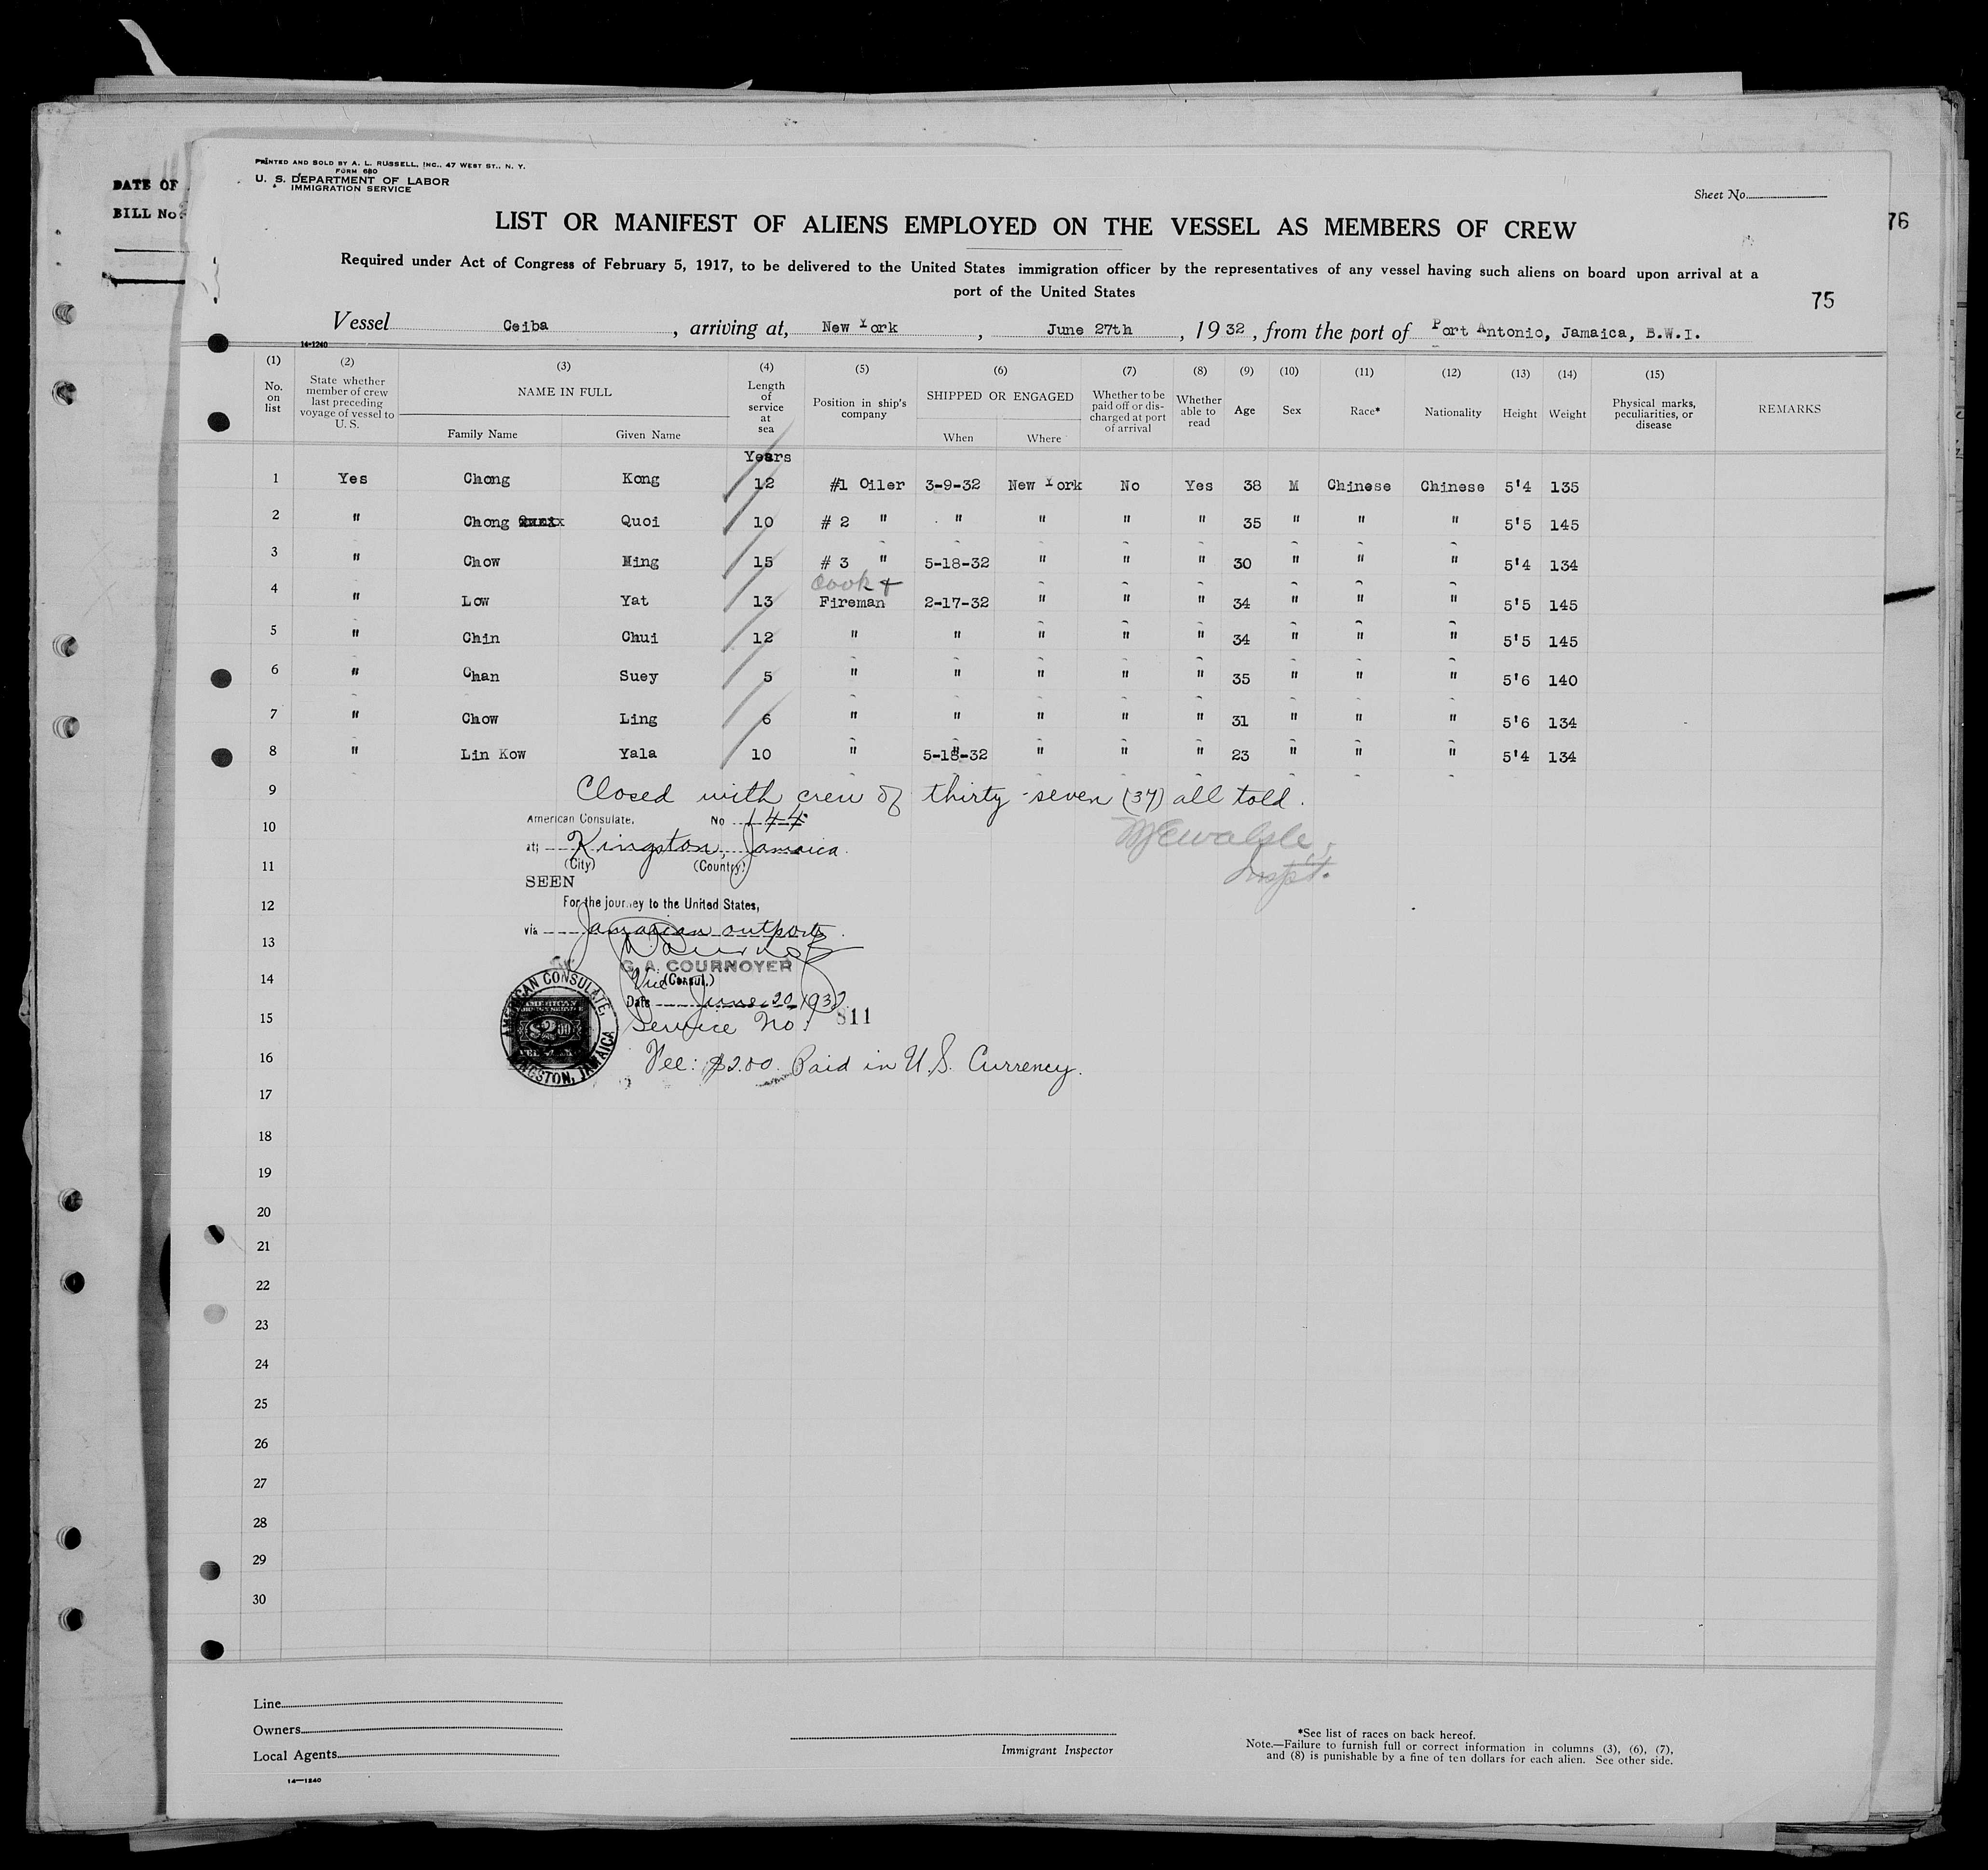 DATE OF
BILL No.
PRINTED AND SOLD BY A. L. RUSSELL, INC., 47 WEST ST., N. Y.
FORM 680
U. S. DEPARTMENT OF LABOR
IMMIGRATION SERVICE
Sheet No.
76
LIST OR MANIFEST OF ALIENS EMPLOYED ON THE VESSEL AS MEMBERS OF CREW
Required under Act of Congress of February 5, 1917, to be delivered to the United States immigration officer by the representatives of any vessel having such aliens on board upon arrival at a
port of the United States
75
Vessel Ceiba, arriving at, New York, June 27th, 1932, from the port of Port Antonio, Jamaica, B.W.I.
14-1240
(1) (2) (3) (4) (5) (6) (7) (8) (9) (10) (11) (12) (13) (14) (15)
No. on list
State whether member of crew last preceding voyage of vessel to U. S.
NAME IN FULL
Family Name Given Name
Length of service at sea
Position in ship's company
SHIPPED OR ENGAGED
When Where
Whether to be paid off or discharged at port of arrival
Whether able to read
Age Sex Race* Nationality Height Weight
Physical marks, peculiarities, or disease
REMARKS
Years
1 Yes Chong Kong 12 #1 Oiler 3-9-32 New York No Yes 38 M Chinese Chinese 5'4 135
2 " Chong Quoi 10 # 2 " " " " " 35 " " " 5'5 145
3 " Chow Ming 15 # 3 " 5-18-32 " " " 30 " " " 5'4 134
Cook &
4 " Low Yat 13 Fireman 2-17-32 " " " 34 " " " 5'5 145
5 " Chin Chui 12 " " " " " 34 " " " 5'5 145
6 " Chan Suey 5 " " " " " 35 " " " 5'6 140
7 " Chow Ling 6 " " " " " 31 " " " 5'6 134
8 " Lin Kow Yala 10 " 5-18-32 " " " 23 " " " 5'4 134
9 Closed with crew of thirty-seven (37) all told.
American Consulate. No 144
10
at Kingston, Jamaica.
(City) (Country)
11
Inspt.
SEEN
12 For the journey to the United States,
via Jamaican outports.
13
G. A. COURNOYER
14 Vice (Consul.)
Date June 20, 1932
15 Service No: 811
16 Fee: $2.00. Paid in U.S. Currency.
AMERICAN CONSULATE, KINGSTON, JAMAICA
AMERICAN
$2.00
17
18
19
20
21
22
23
24
25
26
27
28
29
30
Line
Owners
Local Agents
14—1240
Immigrant Inspector
*See list of races on back hereof.
Note.—Failure to furnish full or correct information in columns (3), (6), (7),
and (8) is punishable by a fine of ten dollars for each alien. See other side.